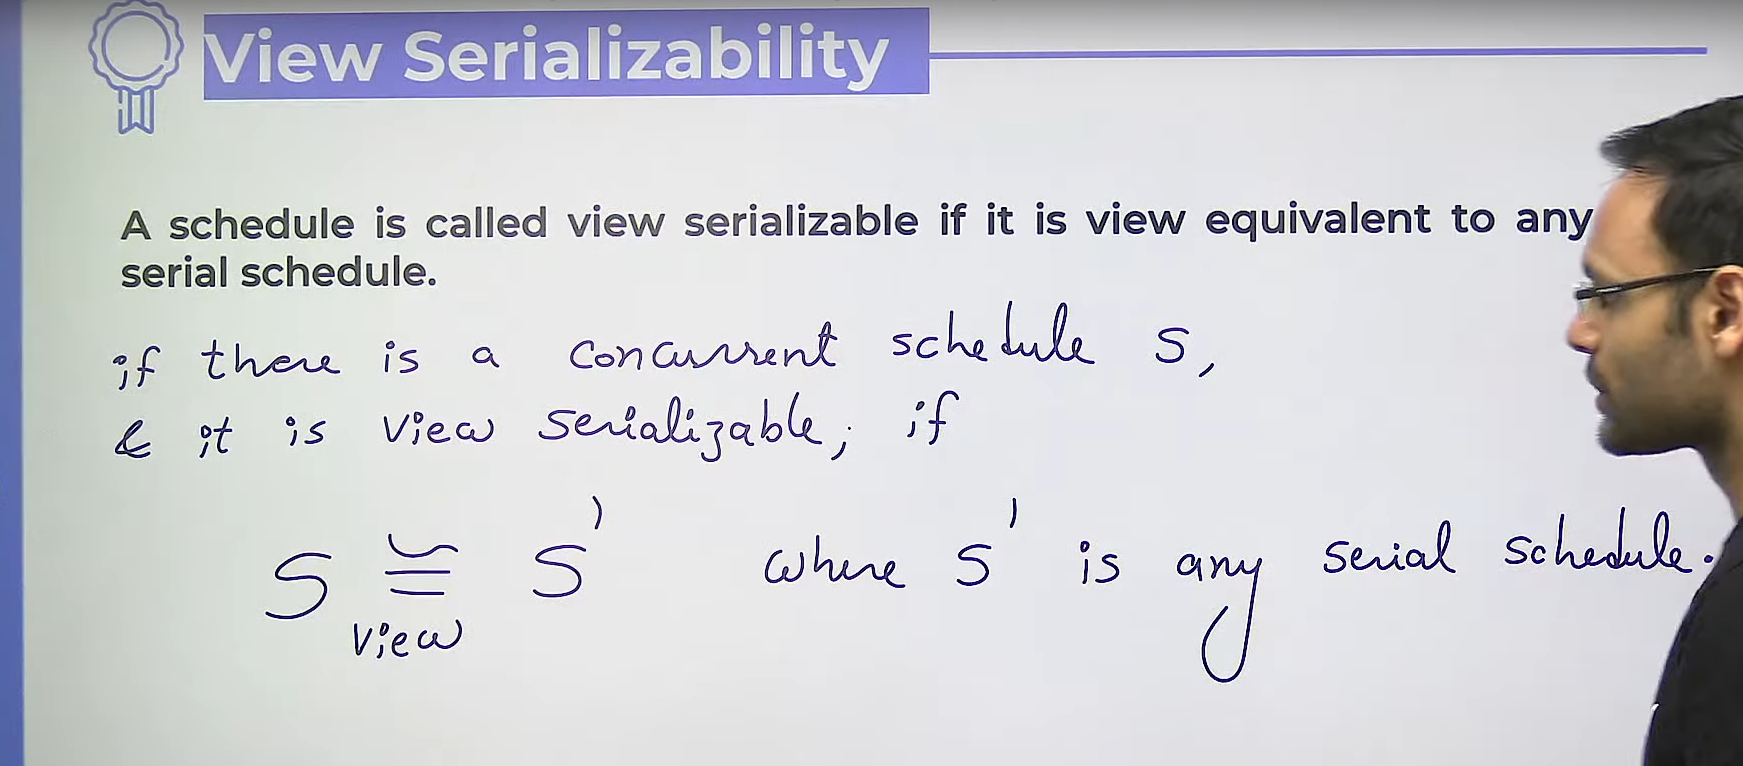 View Serializability
A schedule is called view serializable if it is view equivalent to any
serial schedule.
if there is a concurrent schedule S,
& it is view serializable, if
S ≅ S'    where S' is any serial schedule.
view